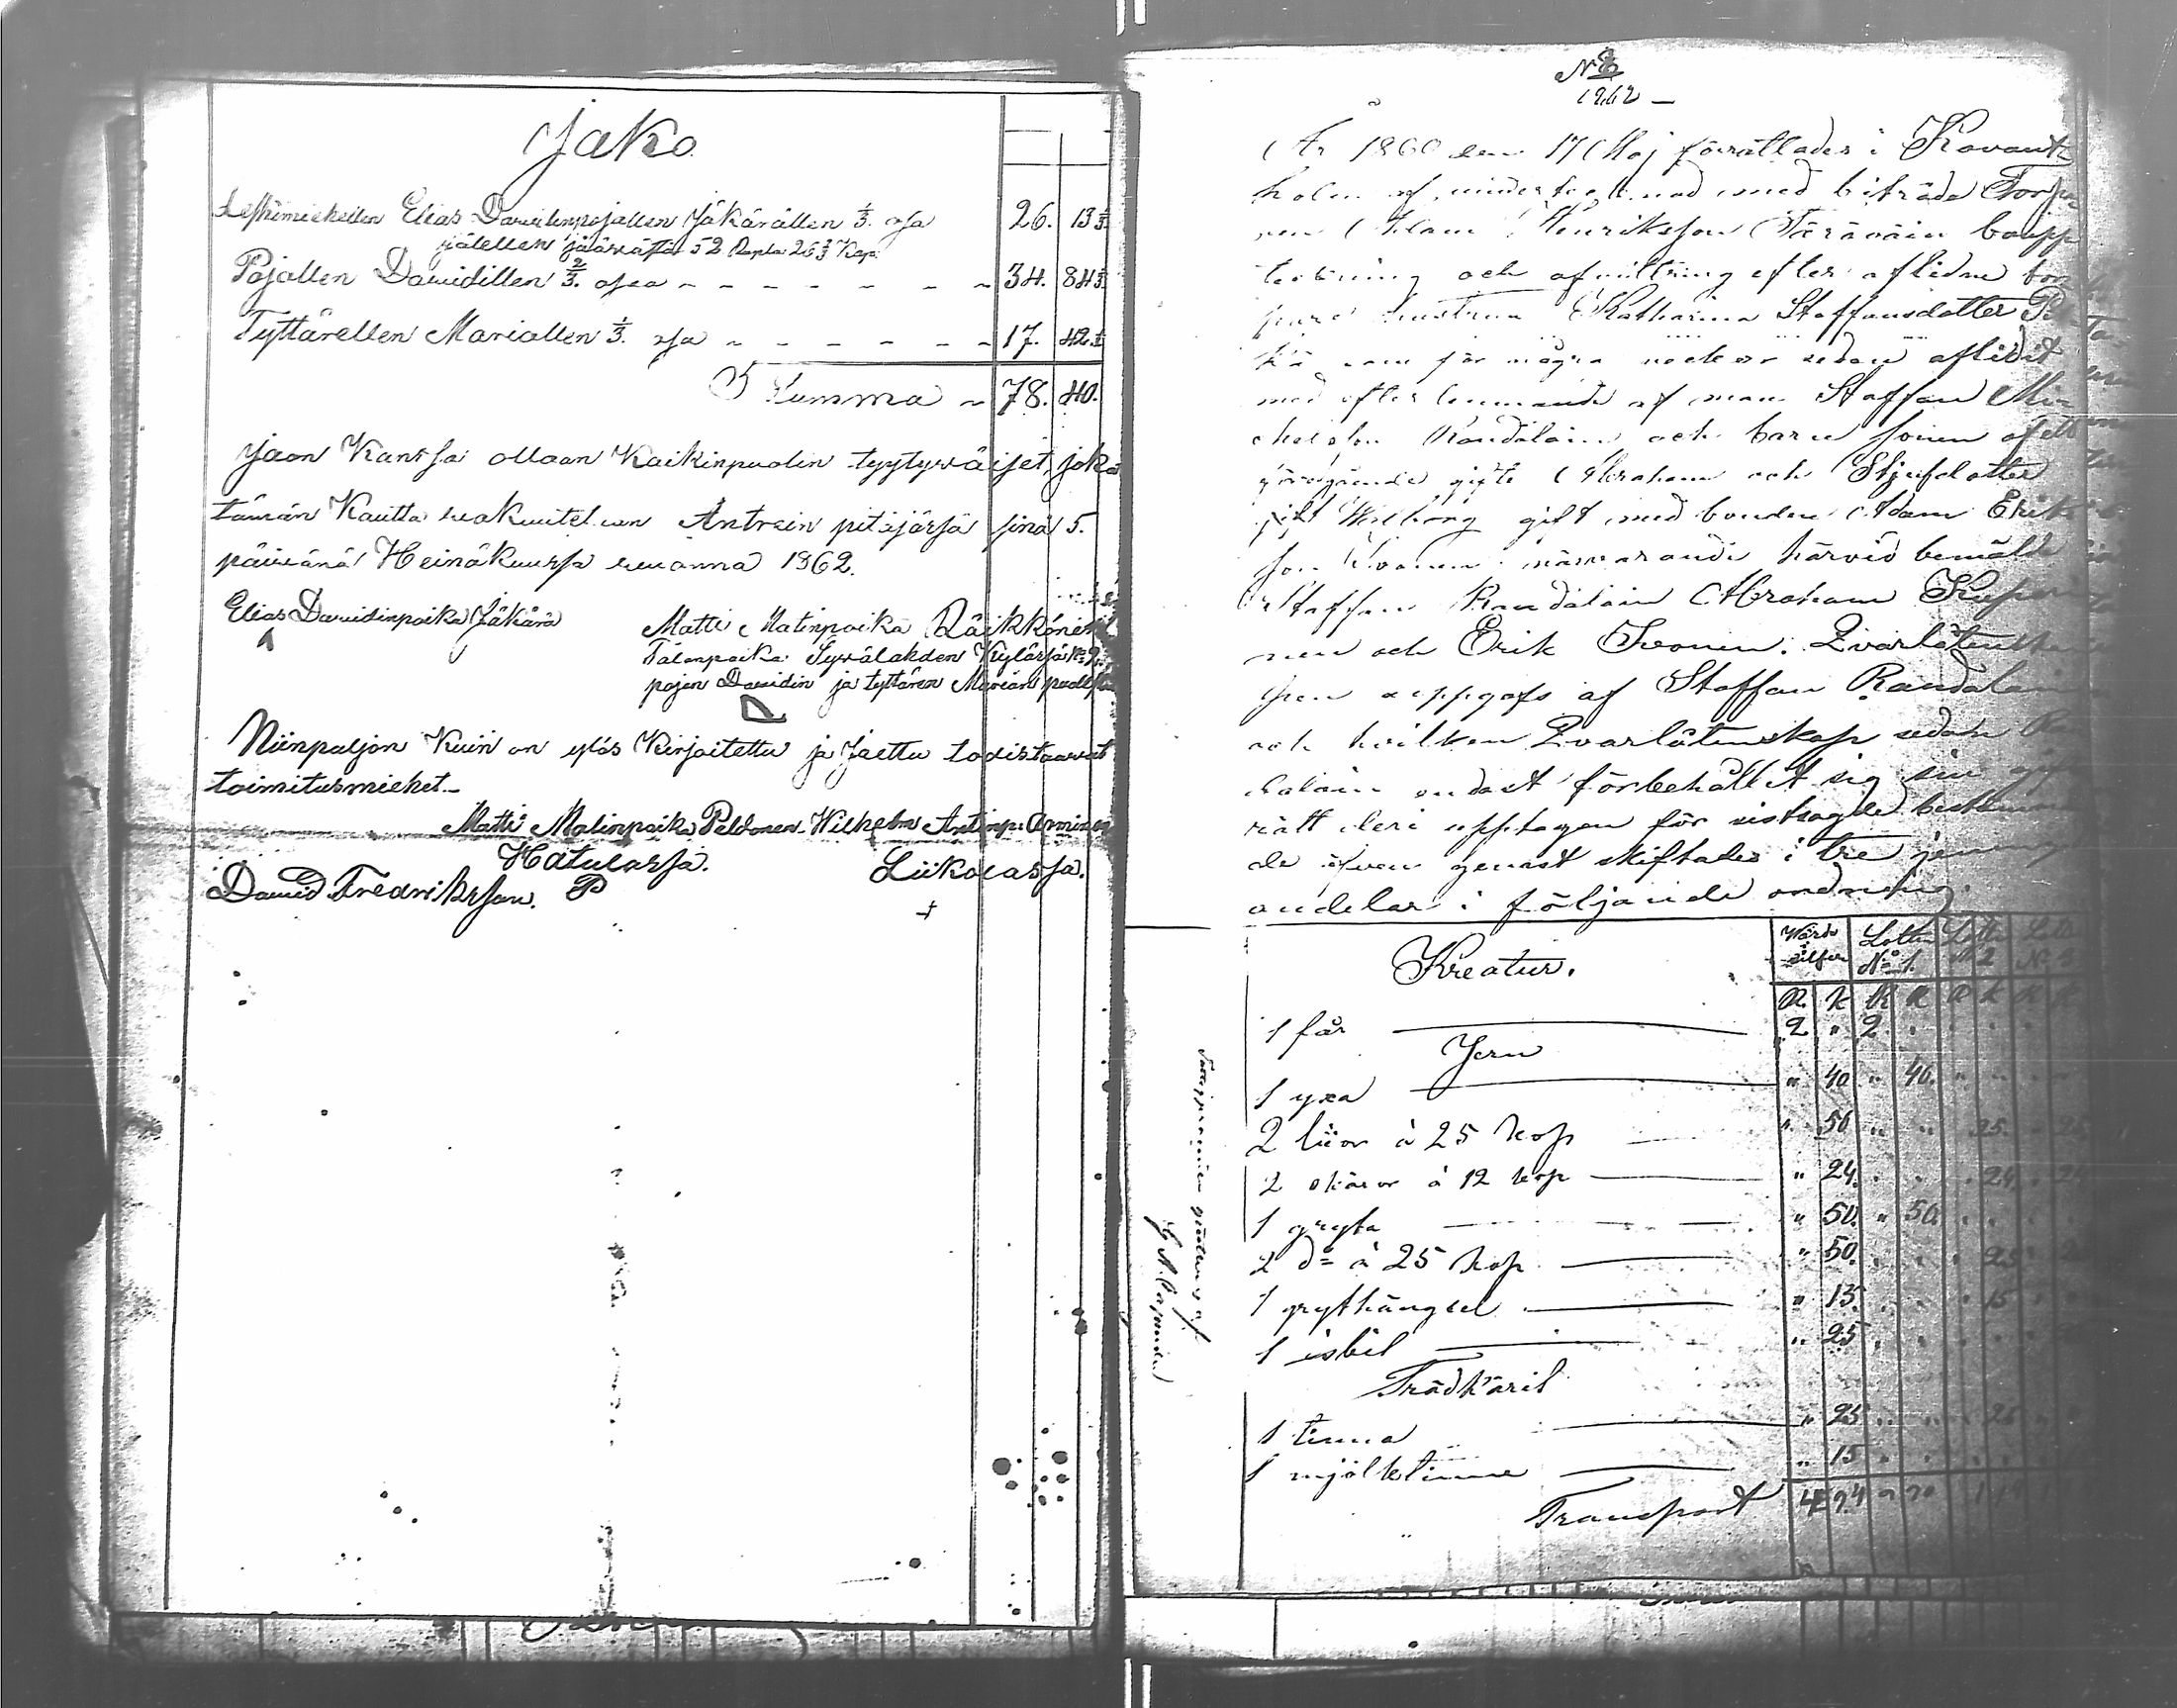 Jako
Leskimiehellen Elias Davidinpojallen Jäkärällen 1/3. osa 26. 13 1/3
jälellen jäävästä 52 Rupla 26 2/3 Kop.
Pojallen Davidillen 2/3. osa - - - - - - - 34. 84 1/3
Tyttärellen Mariallen 1/3. osa - - - - - - 17. 42
Summa - 78. 40.
Jaon Kanssa ollaan Kaikinpuolin tyytyväiset, joka
tämän Kautta vakuutetaan Antrein pitäjässä sinä 5.
päivänä Heinäkuussa vuonna 1862.
Elias Davidinpoika Jäkärä
Matti Matinpoika Räikkönen
Talonpoika Syvälahden Kylässä No 9.
pojan Davidin ja tyttären Marian puolesta
Niinpaljon Kuin on ylös Kirjoitettu ja Jaettu todistaavat
toimitusmiehet.
Matti Matinpoika Peldonen Wilhelm Antinp.
Hatulassa. Liikolassa.
David Fredriksson. P +
No
1262 -
År 1860 den 17 Maj förrättades i Kavant
holm af undertecknad med biträde Torpa
ren Adam Henriksson Täräväin boupp
teckning och afvittring efter aflidne
hustrun Katharina Staffansdotter
som för några veckor sedan aflidit
med efterlemnande af man Staffan Mi
chelsson Randalain och barn sonen af ett
föregående gifte Abraham och Stjufdotter
Walborg gift med bonden Adam Erik
son Ivonen närvarande härvid bemälde
Staffan Randalain Abraham
nen och Erik Ivonen. Qvarlåtenska
pen uppgafs af Staffan Randalain
och hvilken Qvarlåtenskap sedan Ran
dalain endast förbehållit sig sin gifto
rätt deri upptagen för sistsagde bestämman
de äfven genast skiftades i tre jemna
andelar i följande ordning.
Kreatur. Värde silfver Lotten No 1. Lotten No 2 Lotten No 3
R. K R K R K R K
1 får 2 " 2 "
Jern
1 yxa " 40 " 40.
2 liior à 25 kop " 50 " " 25 25
2 skäror à 12 kop " 24. 24
1 gryta " 50. " 50.
2 d= à 25 kop " 50. 25
1 grythängsel " 15. 15
1 isbil " 25
Trädkäril
1 tinna " 25 25
1 mjölktinna " 15
Transport 4